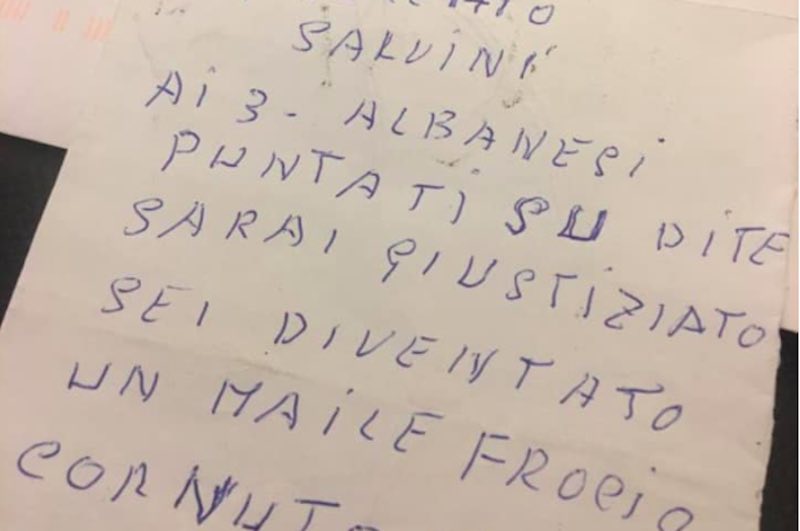 SALVINI
AI 3 - ALBANESI
PUNTATI SU DI TE
SARAI GIUSTIZIATO
SEI DIVENTATO
UN MAILE FROCIO
CORNUTO